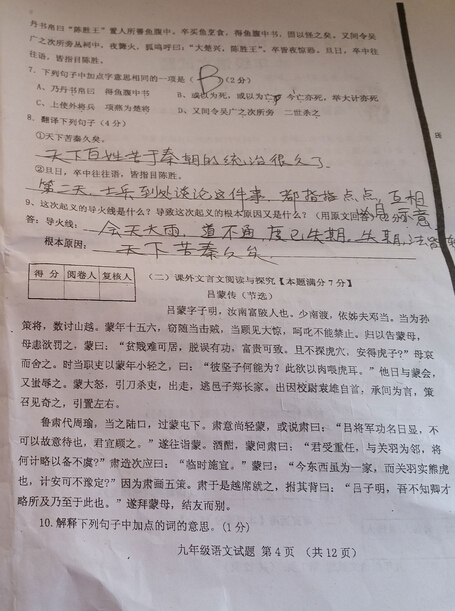 丹书帛曰"陈胜王"置人所罾鱼腹中。卒买鱼烹食，得鱼腹中书，固以怪之矣。又间令吴
广之次所旁丛祠中，夜篝火，狐鸣呼曰："大楚兴，陈胜王"。卒皆夜惊恐。旦日，卒中往
往语，皆指目陈胜。
7、下列句子中加点字意思相同的一项是（B）(2分)
A、乃丹书帛曰 得鱼腹中书 B、或以为死，或以为亡 今亡亦死，举大计亦死
C、上使外将兵 项燕为楚将 D、又间令吴广之次所旁 二世杀之
8、翻译下列句子（4分）
①天下苦秦久矣。
天下百姓苦于秦朝的统治很久了
②旦日，卒中往往语，皆指目陈胜。
第二天，士兵到处谈论这件事，都指指点点，互相
9、这次起义的导火线是什么？导致这次起义的根本原因又是什么？（用原文回
示意
答：导火线： 会天大雨，道不通 度已失期，失期，法皆
根本原因： 天下苦秦久矣
得 分 阅卷人 复核人
（二）课外文言文阅读与探究【本题满分7分】
吕蒙传（节选）
吕蒙字子明，汝南富陂人也。少南渡，依姊夫邓当。当为孙
策将，数讨山越。蒙年十五六，窃随当击贼，当顾见大惊，呵叱不能禁止。归以告蒙母，
母恚欲罚之，蒙曰："贫贱难可居，脱误有功，富贵可致。且不探虎穴，安得虎子？"母哀
而舍之。时当职吏以蒙年小轻之，曰："彼竖子何能为？此欲以肉喂虎耳。"他日与蒙会，
又蚩辱之。蒙大怒，引刀杀吏，出走，逃邑子郑长家。出因校尉袁雄自首，承间为言，策
召见奇之，引置左右。
鲁肃代周瑜，当之陆口，过蒙屯下。肃意尚轻蒙，或说肃曰："吕将军功名日显，不
可以故意待也，君宜顾之。"遂往诣蒙。酒酣，蒙问肃曰："君受重任，与关羽为邻，将
何计略以备不虞？"肃造次应曰："临时施宜。"蒙曰："今东西虽为一家，而关羽实熊虎
也，计安可不豫定？"因为肃画五策。肃于是越席就之，拊其背曰："吕子明，吾不知卿才
略所及乃至于此也。"遂拜蒙母，结友而别。
10.解释下列句子中加点的词的意思。(1分)
九年级语文试题 第4页 （共12页）